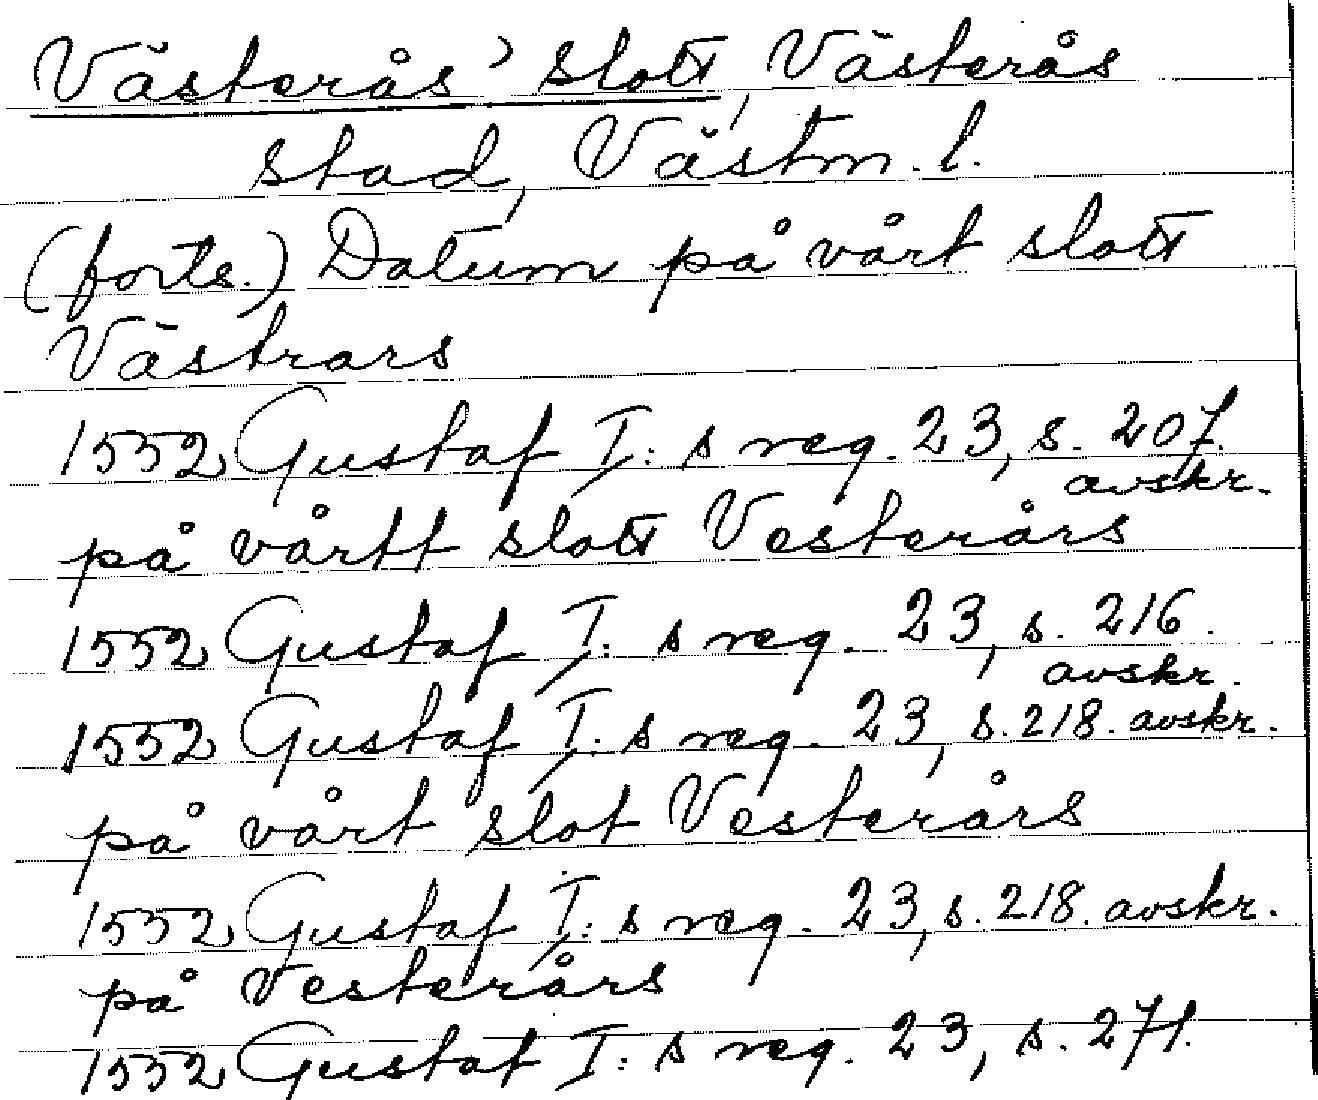 Västerås' slott, Västerås
stad, Västm. l.
(forts.) Datum på vårt slott
Västrars
1552 Gustaf I:s reg. 23, s. 207.
avskr.
på vårtt slott Vesterårs
1552 Gustaf I:s reg. 23, s. 216.
avskr.
1552 Gustaf I:s reg. 23, s. 218. avskr.
på vårt slot Vesterårs
1552 Gustaf I:s reg. 23, s. 218. avskr.
på Vesterårs
1552 Gustaf I:s reg. 23, s. 271.